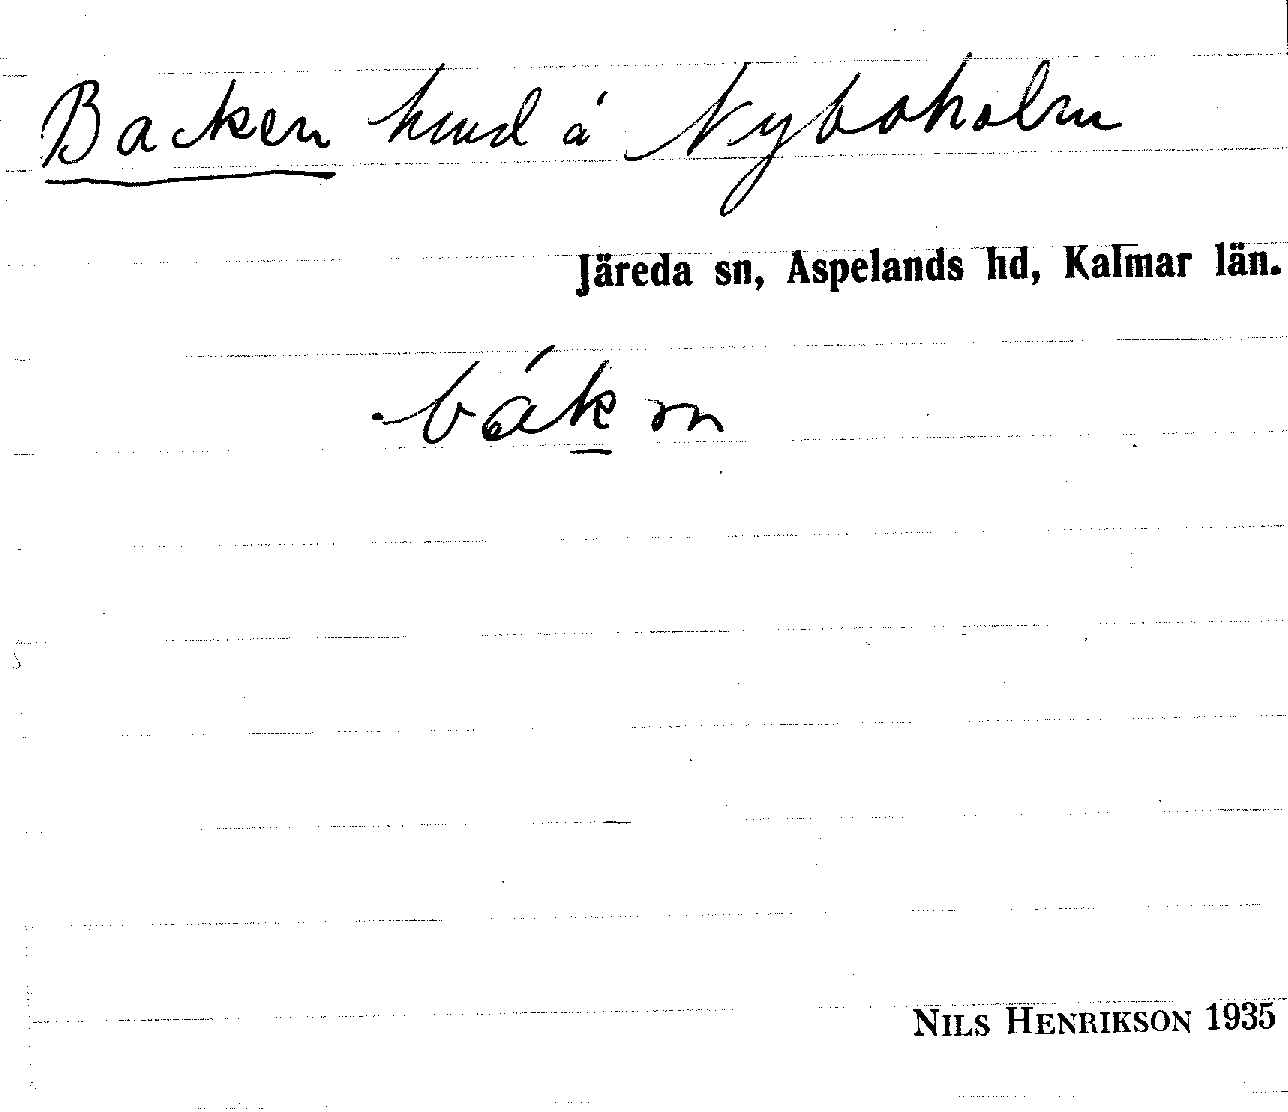 Backen hmd å Nyboholm
Järeda sn, Aspelands hd, Kalmar län.
bák m
NILS HENRIKSON 1935